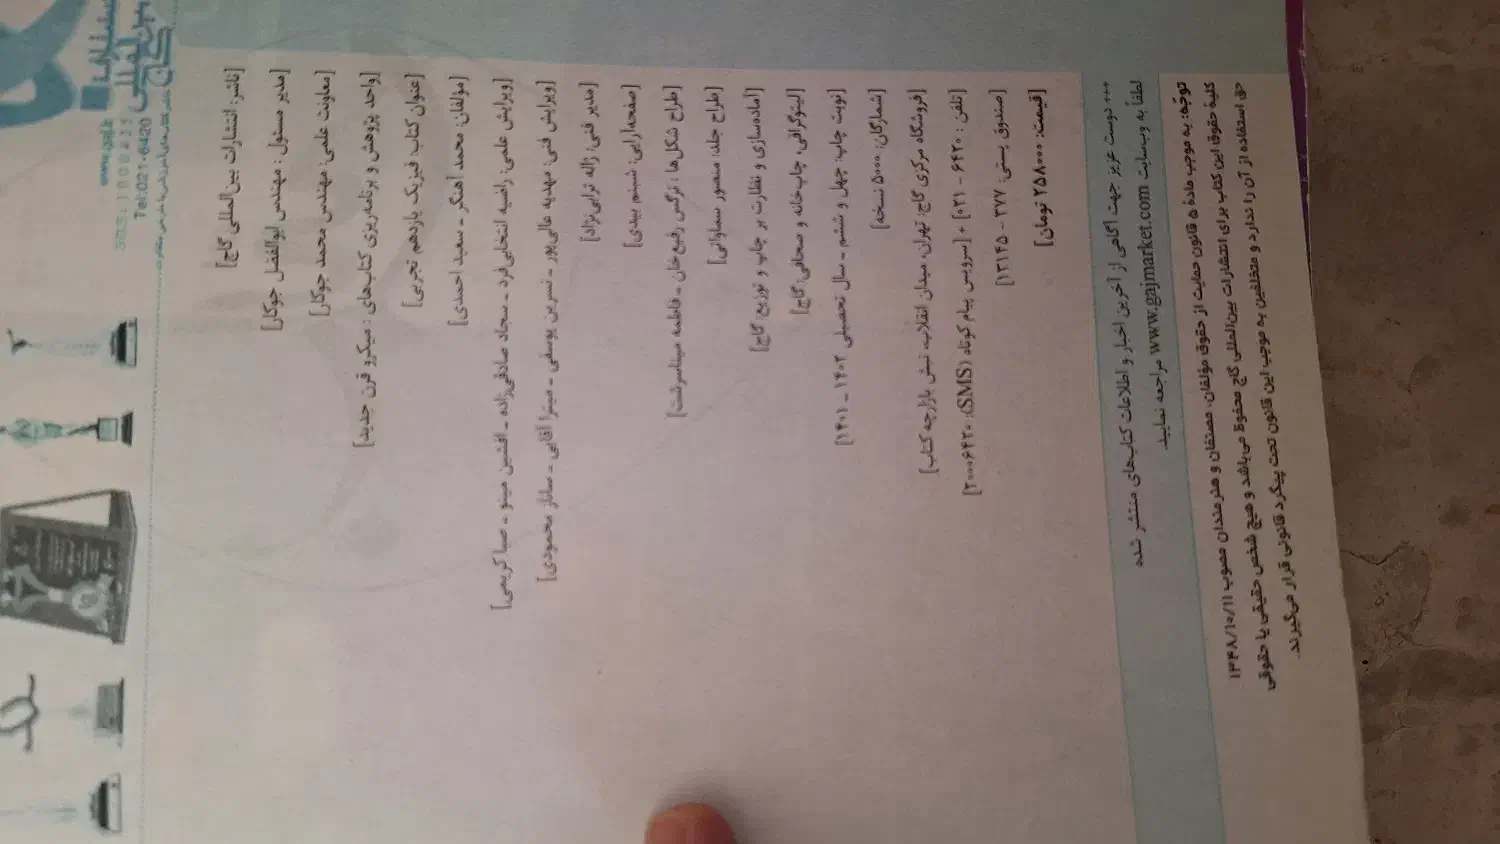 بین‌المللی
گاج
www.gaj.ir
SMS:10006420
Tel:021-6420
[ناشر: انتشارات بین‌المللی گاج]
[مدیر مسئول: مهندس ابوالفضل جوکار]
[معاونت علمی: مهندس محمد جوکار]
[واحد پژوهش و برنامه‌ریزی کتاب‌های: میکرو قرن جدید]
[عنوان کتاب: فیزیک یازدهم تجربی]
[مؤلفان: محمد آهنگر ـ سعید احمدی]
[ویرایش علمی: راضیه انتخابی‌فرد ـ سجاد صادقی‌زاده ـ افشین مینو ـ صبا کریمی]
[ویرایش فنی: مهدیه عالی‌پور ـ نسرین یوسفی ـ میترا آقایی ـ ساناز محمودی]
[مدیر فنی: ژاله ترابی‌نژاد]
[صفحه‌آرایی: شبنم بیدی]
[طراح شکل‌ها: نرگس رفیع‌خان ـ فاطمه میناسرشت]
[طراح جلد: منصور سماواتی]
[آماده‌سازی و نظارت بر چاپ و توزیع: گاج]
[لیتوگرافی، چاپ‌خانه و صحافی: گاج]
[نوبت چاپ: چهل و ششم ـ سال تحصیلی ۱۴۰۲ ـ ۱۴۰۱]
[شمارگان: ۵۰۰۰ نسخه]
[فروشگاه مرکزی گاج: تهران، میدان انقلاب، نبش بازارچه کتاب]
[تلفن: ۶۴۲۰ - ۰۲۱] + [سرویس پیام کوتاه (SMS): ۲۰۰۰۶۴۲۰]
[صندوق پستی: ۳۷۷ - ۱۳۱۴۵]
[قیمت: ۲۵۸۰۰۰ تومان]
+++ دوست عزیز جهت آگاهی از آخرین اخبار و اطلاعات کتاب‌های منتشر شده
لطفاً به وب‌سایت www.gajmarket.com مراجعه نمایید.
توجّه: به موجب مادهٔ ۵ قانون حمایت از حقوق مؤلفان، مصنفان و هنرمندان مصوب ۱۳۴۸/۱۰/۱۱
کلیهٔ حقوق این کتاب برای انتشارات بین‌المللی گاج محفوظ می‌باشد و هیچ شخص حقیقی یا حقوقی
حق استفاده از آن را ندارد و متخلفین به موجب این قانون تحت پیگرد قانونی قرار می‌گیرند.